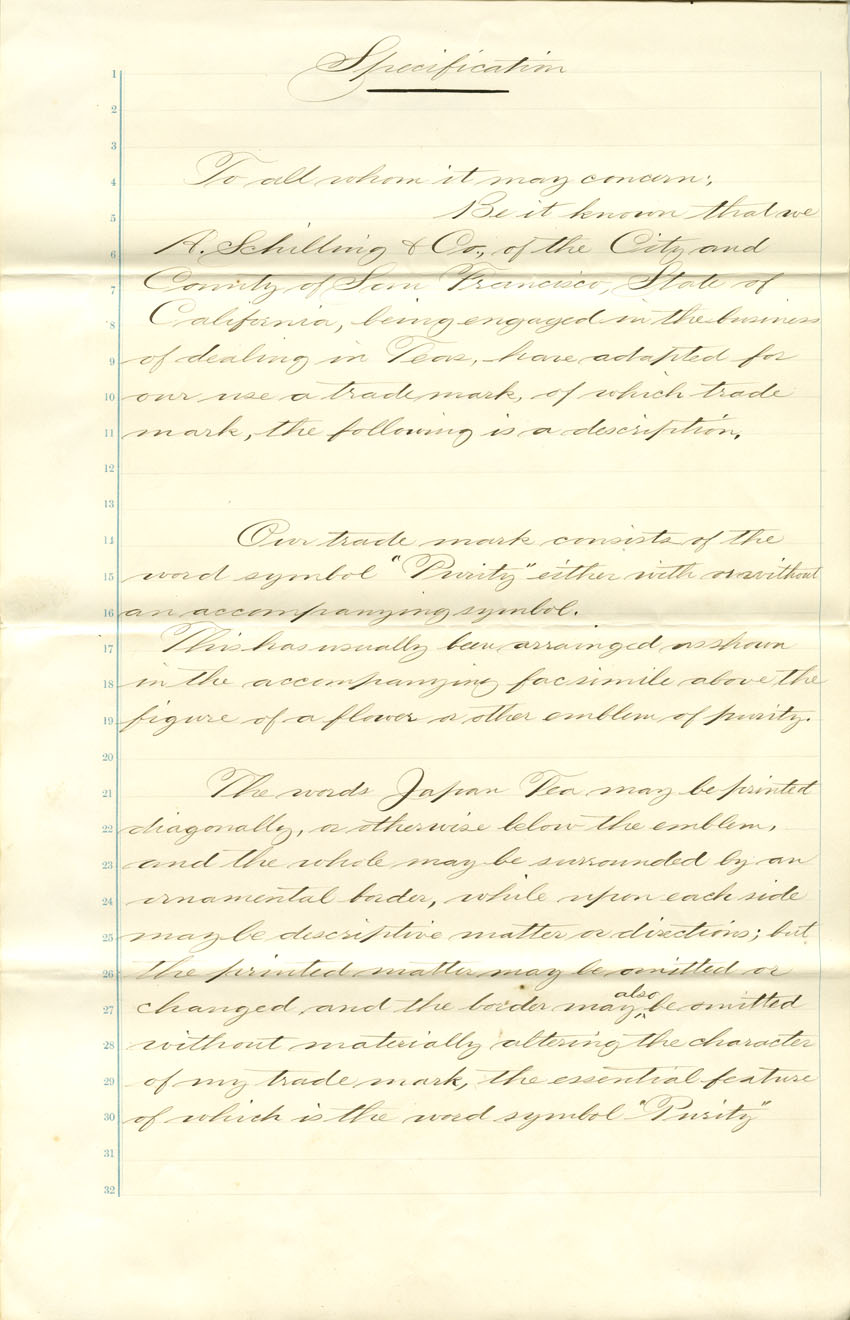 Specification
1
2
3
4 To all whom it may concern;
5 Be it known that we
6 A. Schilling & Co., of the City and
7 County of San Francisco, State of
8 California, being engaged in the business
9 of dealing in Teas, have adapted for
10 our use a trade mark, of which trade
11 mark, the following is a description.
12
13
14 Our trade mark consists of the
15 word symbol "Purity" either with or without
16 an accompanying symbol.
17 This has usually been arrainged as shown
18 in the accompanying facsimile above the
19 figure of a flower or other emblem of purity.
20
21 The words Japan Tea may be printed
22 diagonally, or otherwise below the emblem,
23 and the whole may be surrounded by an
24 ornamental border, while upon each side
25 may be descriptive matter or directions; but
26 the printed matter may be omitted or
27 changed and the border may also be omitted
28 without materially altering the character
29 of my trade mark, the essential feature
30 of which is the word symbol "Purity"
31
32